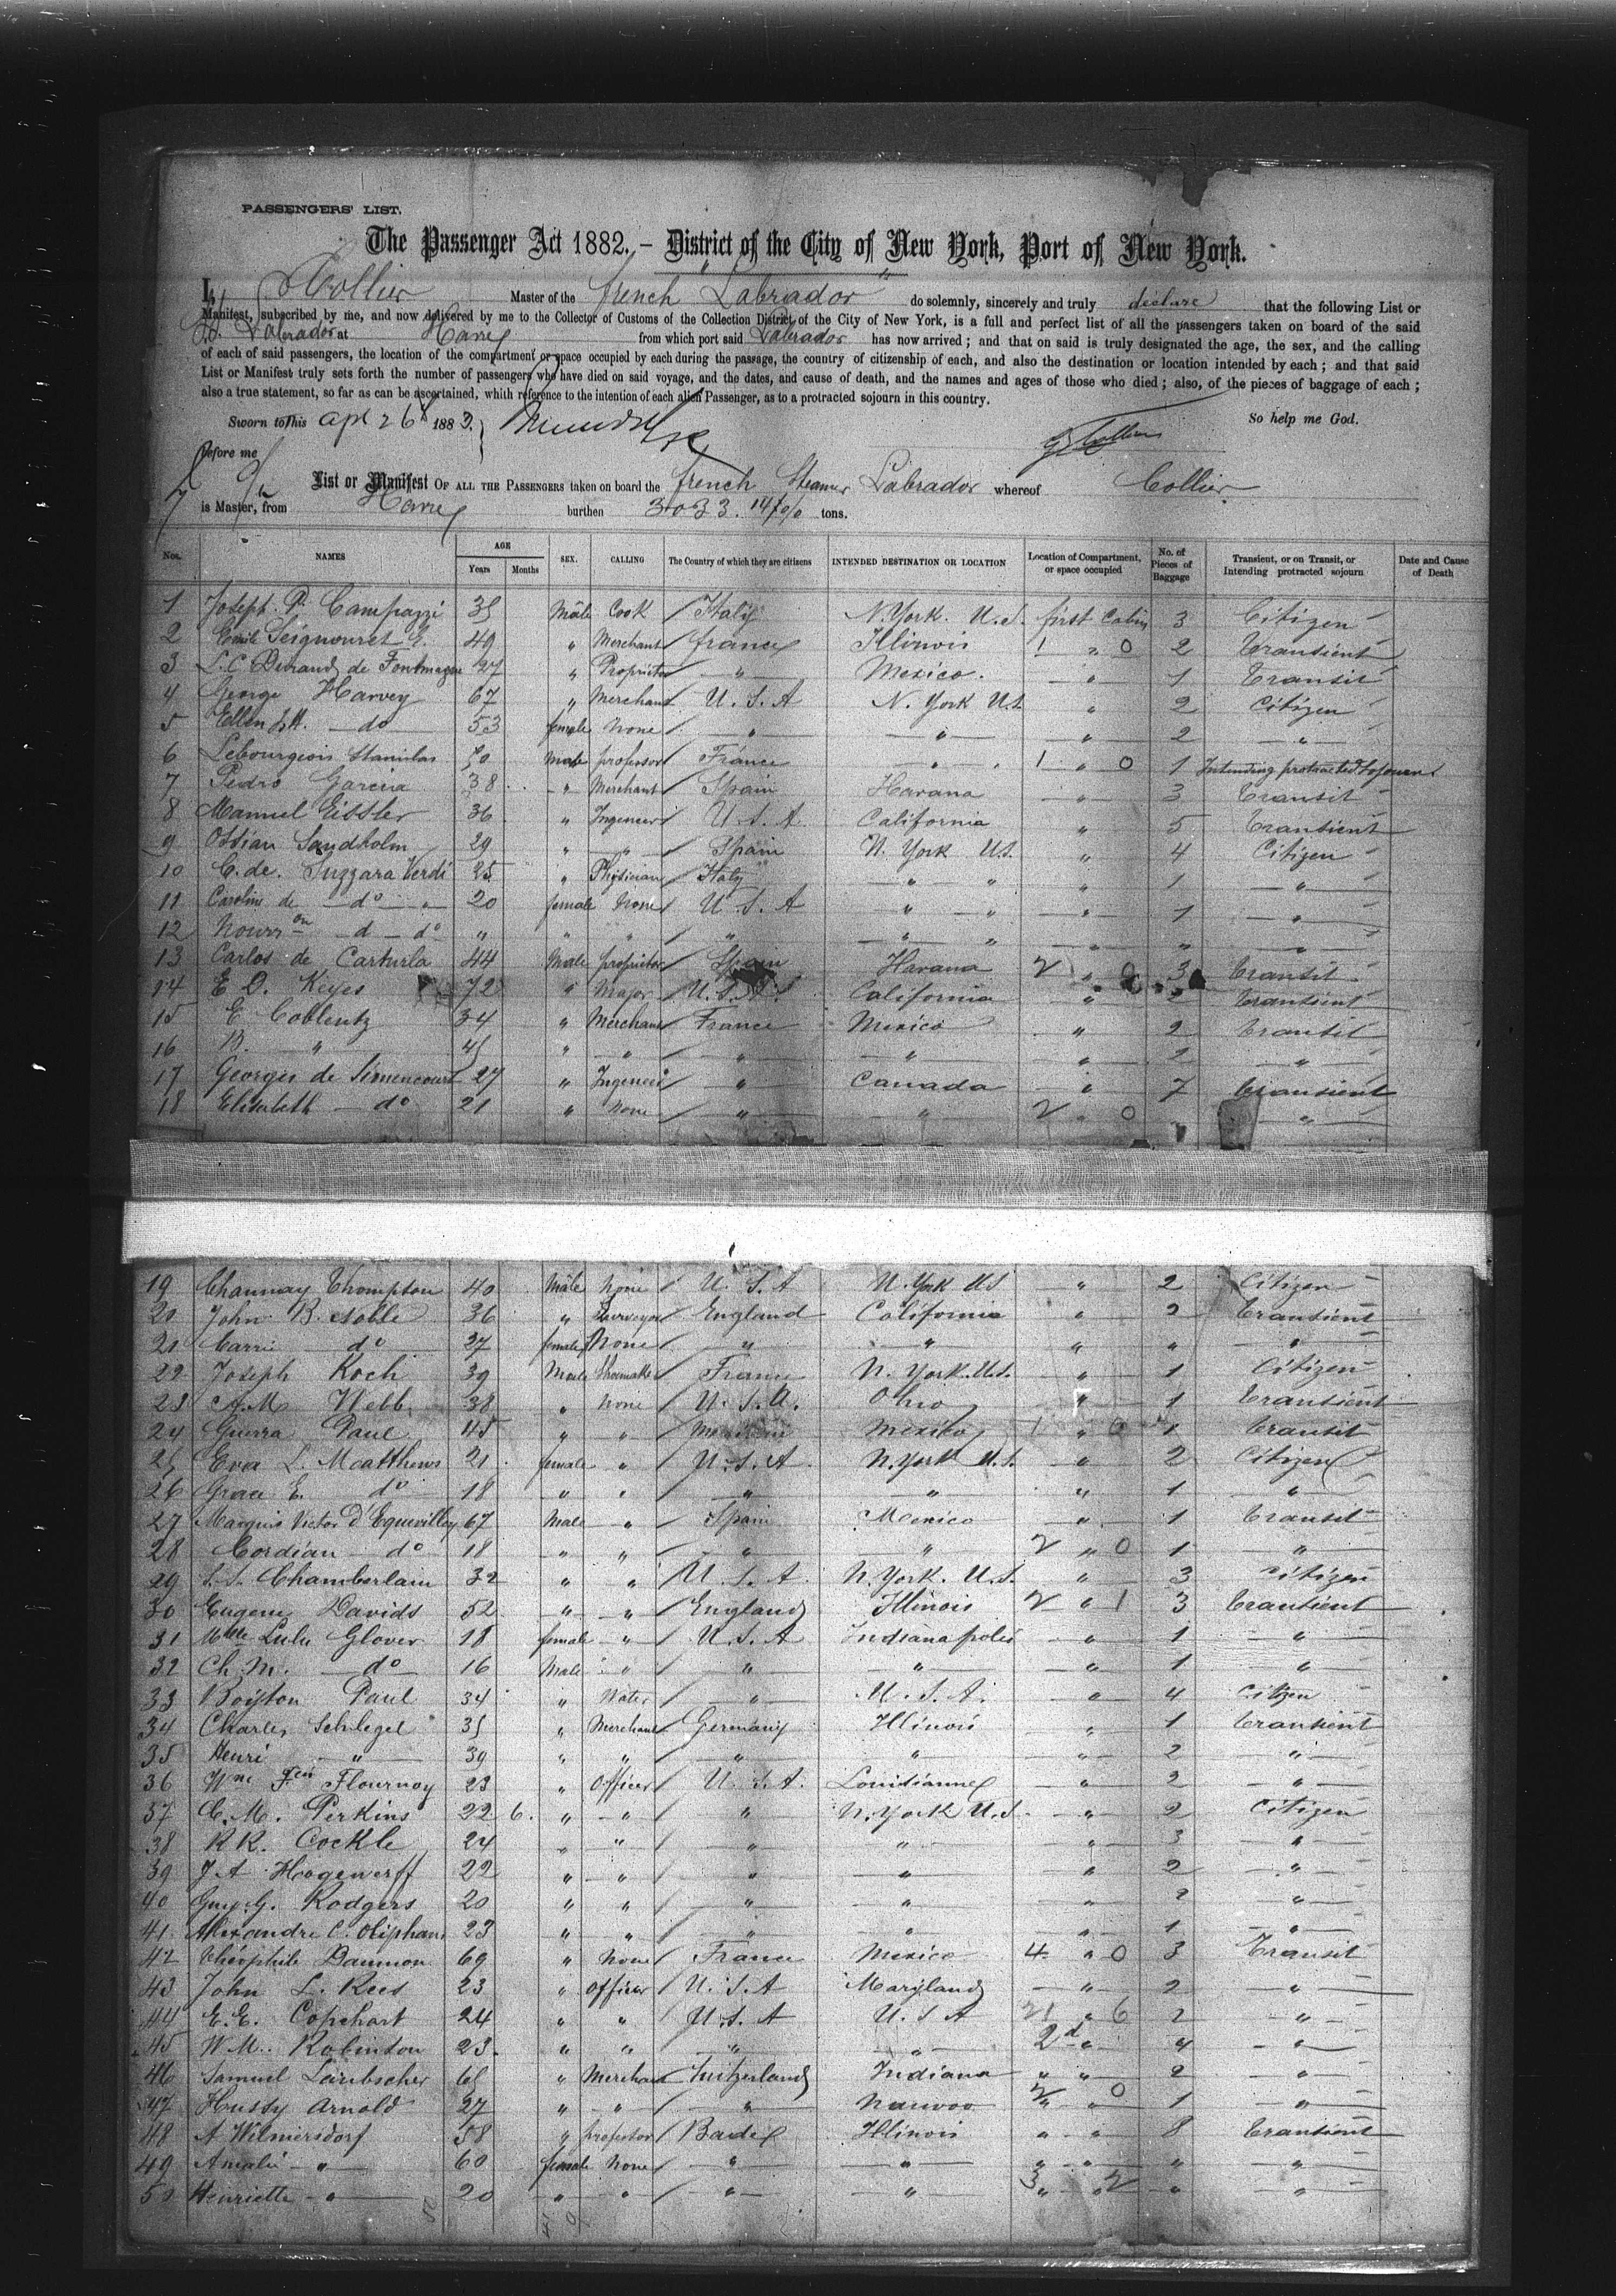 PASSENGERS' LIST.
The Passenger Act 1882. – District of the City of New York, Port of New York.
I, Collier Master of the french "Labrador" do solemnly, sincerely and truly declare that the following List or
Manifest, subscribed by me, and now delivered by me to the Collector of Customs of the Collection District of the City of New York, is a full and perfect list of all the passengers taken on board of the said
Labrador at Havre from which port said Labrador has now arrived; and that on said is truly designated the age, the sex, and the calling
of each of said passengers, the location of the compartment or space occupied by each during the passage, the country of citizenship of each, and also the destination or location intended by each; and that said
List or Manifest truly sets forth the number of passengers who have died on said voyage, and the dates, and cause of death, and the names and ages of those who died; also, of the pieces of baggage of each;
also a true statement, so far as can be ascertained, whith reference to the intention of each alien Passenger, as to a protracted sojourn in this country.
Sworn to this apl 26 1883. So help me God.
Before me
List or Manifest OF ALL THE PASSENGERS taken on board the french Steamer Labrador whereof Collier
is Master, from Havre burthen 3033. 14/00 tons.
Nos. NAMES AGE Years Months SEX. CALLING The Country of which they are citizens INTENDED DESTINATION OR LOCATION Location of Compartment, or space occupied No. of Pieces of Baggage Transient, or on Transit, or Intending protracted sojourn Date and Cause of Death
1 Joseph P. Campazzi 35 Mâle Cook Italy N. York. U.S. first Cabin 3 Citizen
2 Emile Seignouret G. 49 " Merchant france Illinois 1 " 0 2 transient
3 L. C. Durand de Fontmagne 47 " Propriétor " Mexico. " 1 transit
4 George Harvey 67 " Merchant U. S. A N. York US " 2 Citizen
5 Ellen J. H. do 53 female None " " " 2 "
6 Lebourgeois Stanislas 50 Male professor France " 1 " 0 1 Intending protracted Sojourn
7 Pedro Garcia 38 " Merchant Spain Havana " 3 transit
8 Manuel Eissler 36 " Ingeneer U. S. A. California " 5 transient
9 Ossian Sandholm 29 " " Spain N. York US. " 4 Citizen
10 C. de. Suzzara Verdi 25 " Physician Italy " " " 1 "
11 Caroline de do " 20 female None U. S. A " " " 1 "
12 Nourron d do " " " " " " " " "
13 Carlos de Carturla 44 Male proprietor Spain Havana 2 " 0 3 transit
14 E. D. Keyes 72 " Major U. S. A. California " transient
15 E Coblentz 34 " Merchant France Mexico " 2 transit
16 B. " 45 " " " " " 2 "
17 Georges de Simencourt 27 " Ingeneer " Canada " 7 transient
18 Elisabeth do 21 " None " " 2 " 0 "
19 Chaunay Thompson 40 Mâle None U. S. A N. York US " 2 Citizen
20 John B. Noble 36 " Surveyor England California " 2 transient
21 Carrie do 27 female None " " " " "
22 Joseph Koch 39 Male Shoemaker France N. York. U.S. " 1 Citizen
23 A. M Webb 38 " None U. S. A. Ohio " 1 transient
24 Guerra Paul 45 " " Mexico 1 " 0 1 transit
25 Eva L. Matthews 21 female " U. S. A N. York U.S. " 2 Citizen
26 Grace E. do 18 " " " " " 1 "
27 Marquis Victor d'Equevilley 67 Male " Spain Mexico " 1 transit
28 Gordian do 18 " " " " 2 " 0 1 "
29 S. S. Chamberlain 32 " " U. S. A. N. York. U.S. " 3 Citizen
30 Eugene Davids 52 " " England Illinois 2 " 1 3 transient
31 Melle Lulu Glover 18 female " U. S. A Indianapolis " 1 "
32 Ch. M. do 16 Male " " " " 1 "
33 Boyton Paul 34 " Water " U. S. A. " 4 Citizen
34 Charles Schlegel 35 " Merchant Germany Illinois " 1 transient
35 Henri " 39 " " " " " 2 "
36 Wme Fein Flournoy 23 " Officer U. S. A. Louisianne " 2 "
37 C. M. Perkins 22 6. " " " N. York U.S. " 2 Citizen
38 R R. Cockle 24 " " " " " 3 "
39 J. A Hogewerff 22 " " " " " 2 "
40 Guy. G. Rodgers 20 " " " " " 2 "
41 Alexandre C. Oliphant 23 " " " " " 1 "
42 Théophile Damnon 69 " None France Mexico 4 " 0 3 Transit
43 John L. Rees 23 " Officer U. S. A Maryland " 2 "
44 E. E. Copehart 24 " " U. S. A U. S A 21 " 6 2 "
45 W. M. Robinson 23. " " " " 2d " 4 "
46 Samuel Laubscher 65 " Merchant Switzerland Indiana " " 2 "
47 Hussy Arnold 27 " " " Nauvoo 2 " 0 1 "
48 A. Wilmersdorf 58 " professor Bade Illinois " " 8 transient
49 Amalie " 60 female None " " " " " "
50 Henriette " 20 " " " " 3 " 2 " "